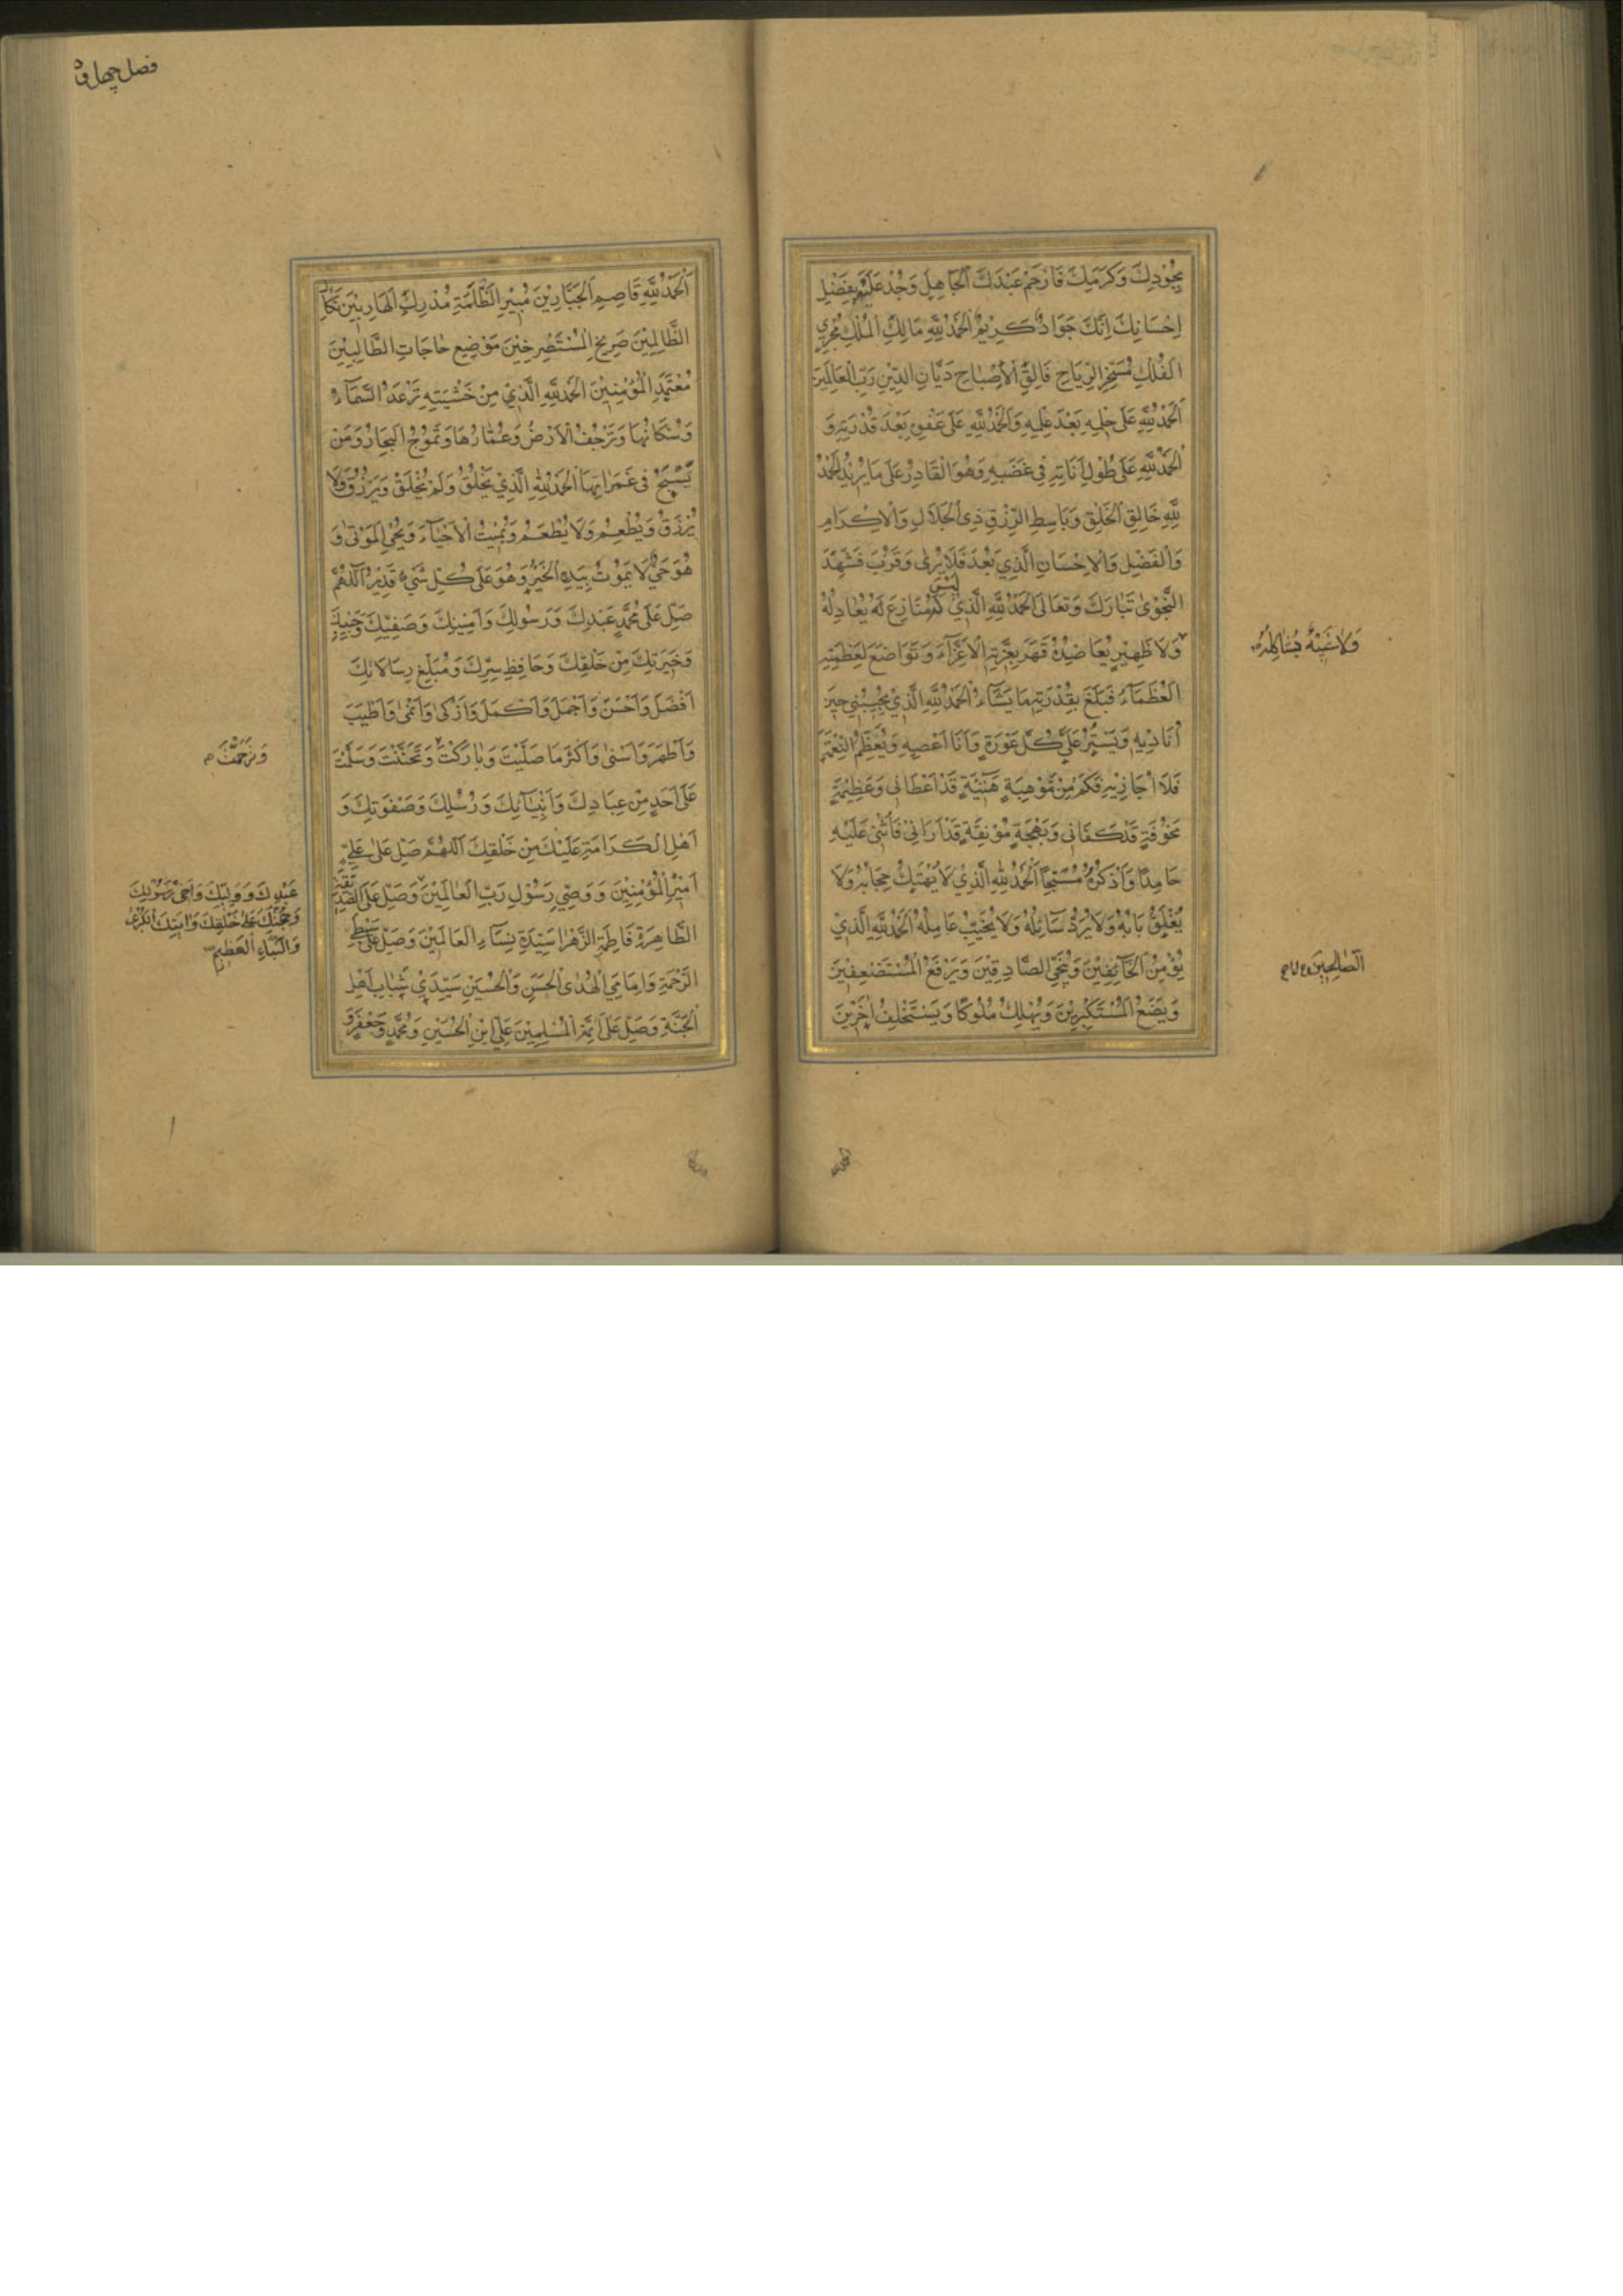 بِجُوْدِكَ وَكَرَمِكَ فَارْحَمْ عَبْدَكَ الْجَاهِلَ وَجُدْ عَلَيْهِ بِفَضْلِ
اِحْسَانِكَ اِنَّكَ جَوَادٌ كَرِيْمٌ اَلْحَمْدُ لِلّٰهِ مَالِكِ الْمُلْكِ مُجْرِي
الْفُلْكِ مُسَخِّرِ الرِّيَاحِ فَالِقِ الْاِصْبَاحِ دَيَّانِ الدِّيْنِ رَبِّ الْعَالَمِيْنَ
اَلْحَمْدُ لِلّٰهِ عَلَى حِلْمِهِ بَعْدَ عِلْمِهِ وَالْحَمْدُ لِلّٰهِ عَلَى عَفْوِهِ بَعْدَ قُدْرَتِهِ وَ
الْحَمْدُ لِلّٰهِ عَلَى طُوْلِ اَنَاتِهِ فِي غَضَبِهِ وَهُوَ الْقَادِرُ عَلَى مَا يُرِيْدُ اَلْحَمْدُ
لِلّٰهِ خَالِقِ الْخَلْقِ وَبَاسِطِ الرِّزْقِ ذِي الْجَلَالِ وَالْاِكْرَامِ
وَالْفَضْلِ وَالْاِحْسَانِ الَّذِي بَعُدَ فَلَا يُرٰى وَقَرُبَ فَشَهِدَ
النَّجْوٰى تَبَارَكَ وَتَعَالَى اَلْحَمْدُ لِلّٰهِ الَّذِي لَيْسَ لَهُ مُنَازِعٌ لَهُ يُعَادِلُهُ
وَلَا شَبِيْهٌ يُشَاكِلُهُ
وَلَا ظَهِيْرٌ يُعَاضِدُهُ قَهَرَ بِعِزَّتِهِ الْاَعِزَّاءَ وَتَوَاضَعَ لِعَظَمَتِهِ
الْعُظَمَاءُ فَبَلَغَ بِقُدْرَتِهِ مَا يَشَاءُ اَلْحَمْدُ لِلّٰهِ الَّذِي يُجِيْبُنِي حِيْنَ
اُنَادِيْهِ وَيَسْتُرُ عَلَيَّ كُلَّ عَوْرَةٍ وَاَنَا اَعْصِيْهِ وَيُعَظِّمُ النِّعْمَةَ
فَلَا اُجَازِيْهِ فَكَمْ مِنْ مَوْهِبَةٍ هَنِيْئَةٍ قَدْ اَعْطَانِي وَعَظِيْمَةٍ
مَخُوْفَةٍ قَدْ كَفَانِي وَبَهْجَةٍ مُوْنِقَةٍ قَدْ اَرَانِيْ فَاُثْنِي عَلَيْهِ
حَامِدًا وَاَذْكُرُهُ مُسَبِّحًا اَلْحَمْدُ لِلّٰهِ الَّذِيْ لَا يُهْتَكُ حِجَابُهُ وَلَا
يُغْلَقُ بَابُهُ وَلَا يُرَدُّ سَائِلُهُ وَلَا يُخَيَّبُ عَامِلُهُ اَلْحَمْدُ لِلّٰهِ الَّذِيْ
يُؤْمِنُ الْخَائِفِيْنَ وَيُنَجِّي الصَّادِقِيْنَ وَيَرْفَعُ الْمُسْتَضْعَفِيْنَ
الصَّالِحِيْنَ
وَيَضَعُ الْمُسْتَكْبِرِيْنَ وَيُهْلِكُ مُلُوْكًا وَيَسْتَخْلِفُ اٰخَرِيْنَ
اَلْحَمْدُ لِلّٰهِ قَاصِمِ الْجَبَّارِيْنَ مُبِيْرِ الظَّلَمَةِ مُدْرِكِ الْهَارِبِيْنَ نَكَالِ
الظَّالِمِيْنَ صَرِيْخِ الْمُسْتَصْرِخِيْنَ مَوْضِعِ حَاجَاتِ الطَّالِبِيْنَ
مُعْتَمَدِ الْمُؤْمِنِيْنَ اَلْحَمْدُ لِلّٰهِ الَّذِيْ مِنْ خَشْيَتِهِ تَرْعَدُ السَّمَاءُ
وَسُكَّانُهَا وَتَرْجُفُ الْاَرْضُ وَعُمَّارُهَا وَتَمُوْجُ الْبِحَارُ وَمَنْ
يَسْبَحُ فِي غَمَرَاتِهَا اَلْحَمْدُ لِلّٰهِ الَّذِيْ يَخْلُقُ وَلَمْ يُخْلَقْ وَيَرْزُقُ وَلَا
يُرْزَقُ وَيُطْعِمُ وَلَا يُطْعَمُ وَيُمِيْتُ الْاَحْيَاءَ وَيُحْيِي الْمَوْتٰى وَ
هُوَ حَيٌّ لَا يَمُوْتُ بِيَدِهِ الْخَيْرُ وَهُوَ عَلَى كُلِّ شَيْءٍ قَدِيْرٌ اَللّٰهُمَّ
صَلِّ عَلَى مُحَمَّدٍ عَبْدِكَ وَرَسُوْلِكَ وَاَمِيْنِكَ وَصَفِيِّكَ وَحَبِيْبِكَ
وَخِيَرَتِكَ مِنْ خَلْقِكَ وَحَافِظِ سِرِّكَ وَمُبَلِّغِ رِسَالَاتِكَ
اَفْضَلَ وَاَحْسَنَ وَاَجْمَلَ وَاَكْمَلَ وَاَزْكٰى وَاَنْمٰى وَاَطْيَبَ
وَاَطْهَرَ وَاَسْنٰى وَاَكْثَرَ مَا صَلَّيْتَ وَبَارَكْتَ وَتَحَنَّنْتَ وَسَلَّمْتَ
وَتَرَحَّمْتَ
عَلَى اَحَدٍ مِنْ عِبَادِكَ وَاَنْبِيَائِكَ وَرُسُلِكَ وَصَفْوَتِكَ وَ
اَهْلِ الْكَرَامَةِ عَلَيْكَ مِنْ خَلْقِكَ اَللّٰهُمَّ صَلِّ عَلٰى عَلِيٍّ
اَمِيْرِ الْمُؤْمِنِيْنَ وَوَصِيِّ رَسُوْلِ رَبِّ الْعَالَمِيْنَ وَصَلِّ عَلَى الصِّدِّيْقَةِ
عَبْدِكَ وَوَلِيِّكَ وَاَخِيْ رَسُوْلِكَ
وَحُجَّتِكَ عَلٰى خَلْقِكَ وَاٰيَتِكَ الْكُبْرٰى
وَالنَّبَاءِ الْعَظِيْمِ
الطَّاهِرَةِ فَاطِمَةَ الزَّهْرَا سَيِّدَةِ نِسَاءِ الْعَالَمِيْنَ وَصَلِّ عَلٰى سِبْطَيِ
الرَّحْمَةِ وَاِمَامَيِ الْهُدٰى الْحَسَنِ وَالْحُسَيْنِ سَيِّدَيْ شَبَابِ اَهْلِ
الْجَنَّةِ وَصَلِّ عَلَى اَئِمَّةِ الْمُسْلِمِيْنَ عَلِيِّ ابْنِ الْحُسَيْنِ وَمُحَمَّدٍ وَجَعْفَرٍ وَ